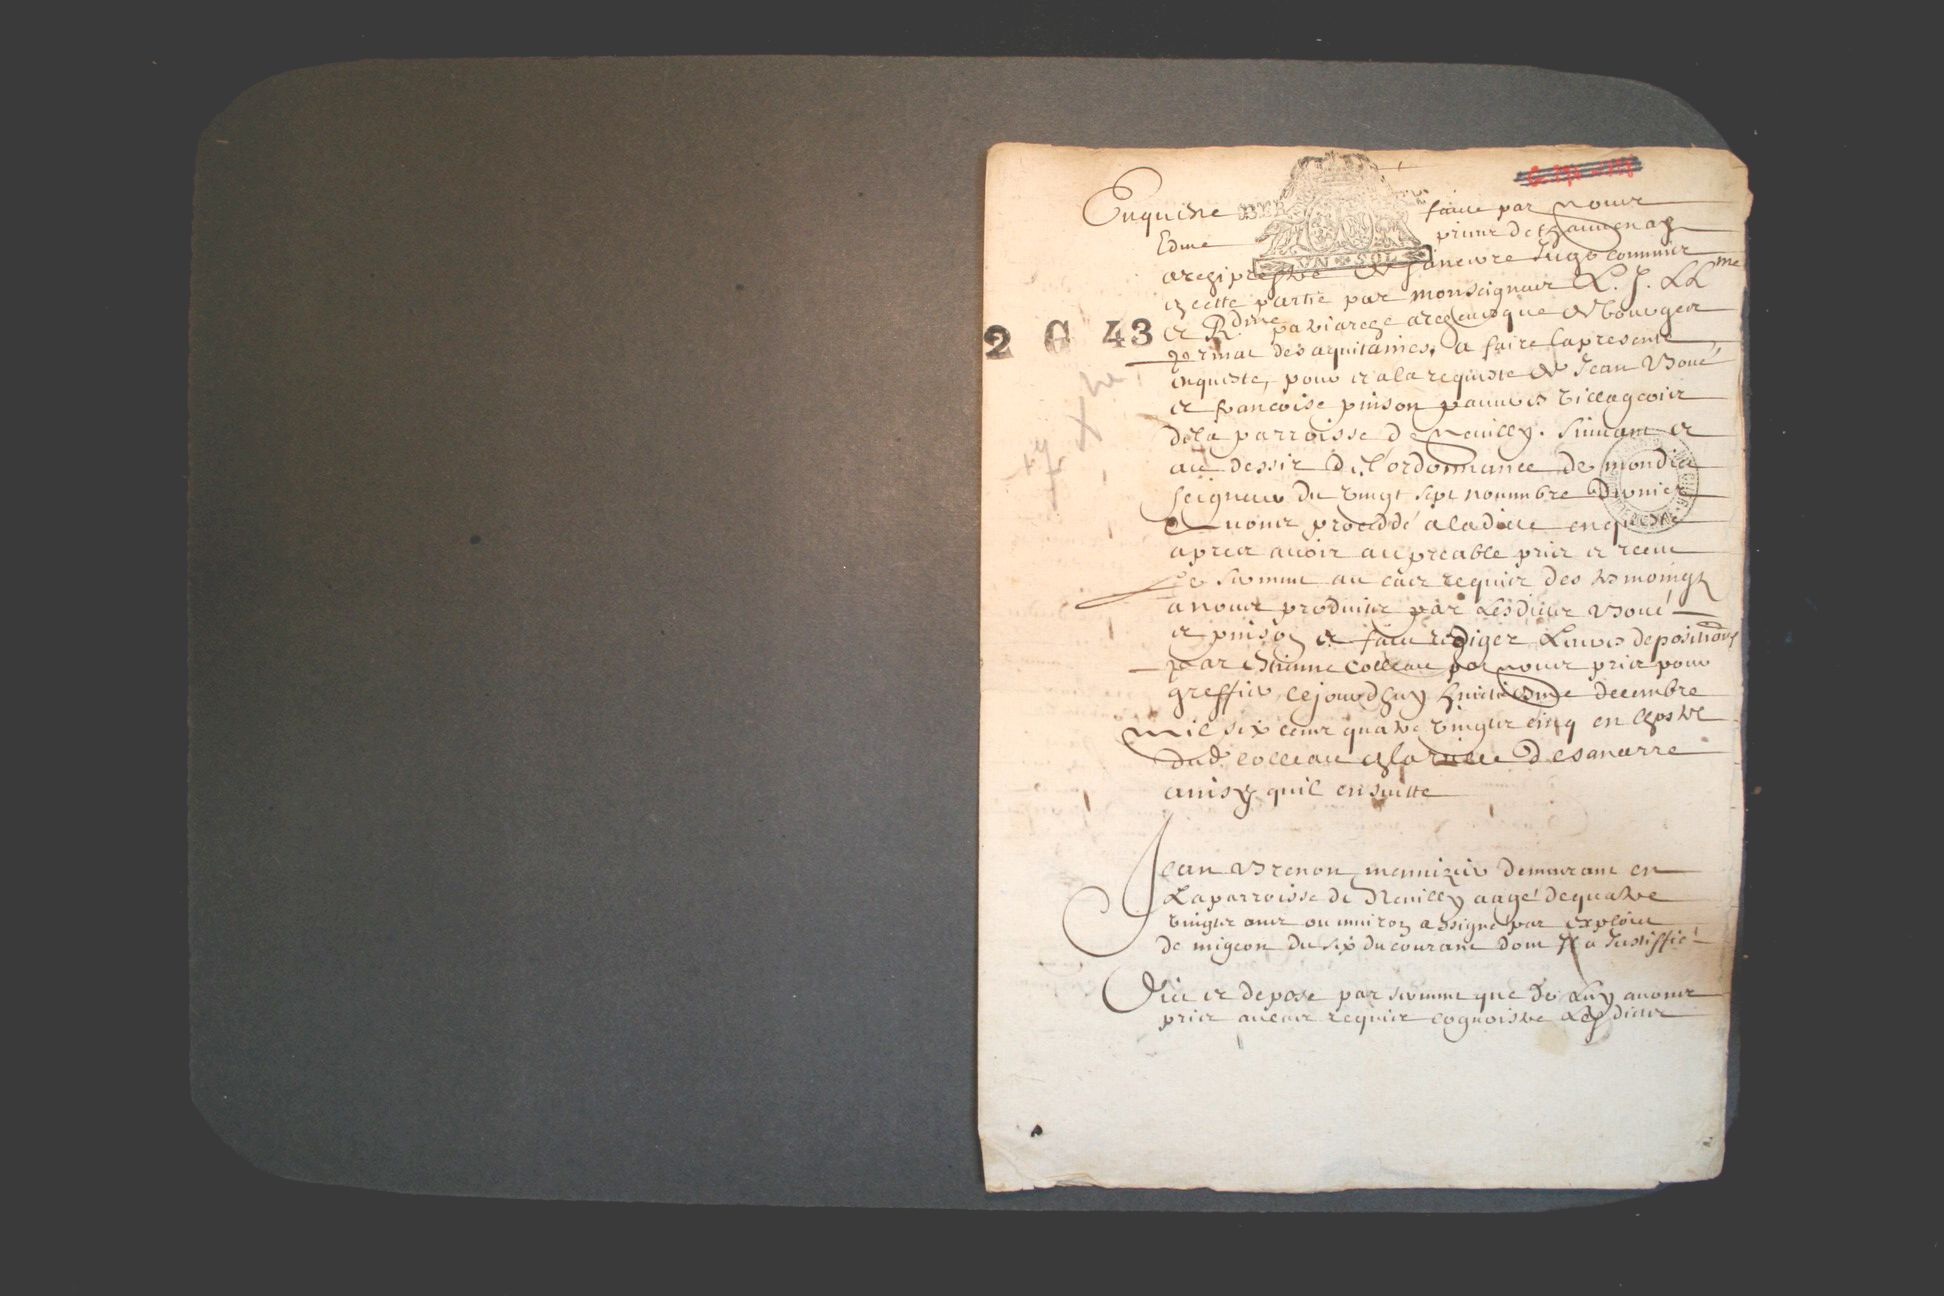 Enqueste BER faicte par nous
Edme prieur de
archiprestre de Sancerre Juge commis
en cette partie par monseigneur L. J. LL me
et R dme patriarche archevesque de bourges
primat des aquitaines, a faire la presente
enqueste, pour et a la requeste de Jean Boué
et francoise pinson pauures villageois
de la parroisse de Neuilly. Suiuant et
au desir de l'ordonnance de mondict
seigneur du vingt sept nouembre dernier
A nous proceddé a la dicte enqueste
apres auoir au preable pris et receu
Le serment au cas requis des tesmoings
a nous produits par Lesdicts Boué
et pinson et faict rediger Leurs depositions
par Estienne colleau par nous pris pour
greffier, cejourdhuy huictiesme decembre
mil six cents quatre vingts cinq en
dud colleau
ainsy quil ensuitte
Jean Brenon menuizier demeurant en
La parroisse de Neuilly aagé de quatre
vingts ans ou enuiron assigné par exploict
de migeon du six du courant dont Il a Justiffié
Dict et depose par serment que de Luy auons
pris au cas requis cognoistre Lesdicts
UN SOL
2 G 43